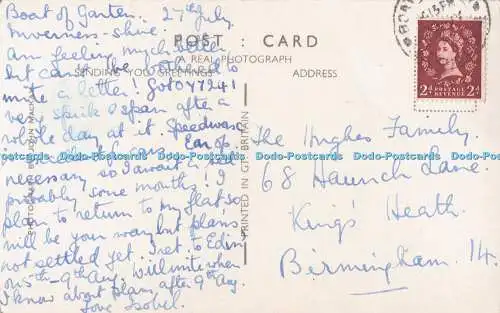 Boat of Garten. 27th July
Inverness-shire.
POST CARD
A REAL PHOTOGRAPH
SENDING YOU GREETINGS
ADDRESS
Am feeling much better
but can't be bothered to
write a letter! Got OYY941
very spick & span after a
whole day at it. Speedwase
necessary so I await
probably some months! I
plan to return to my flat so
will be your way but plans
not settled yet. I ret. to Edin
on 5th - 9th Aug. Will write when
I know about plans after 9th Aug.
Love Isobel.
BOAT
PM
2d POSTAGE REVENUE 2d
The Hughes Family.
68 Haunch Lane.
King's Heath.
Birmingham. 14.
PRINTED IN GT. BRITAIN
Dodo-Postcards Dodo-Postcards Dodo-Postcards Dodo-Postcards